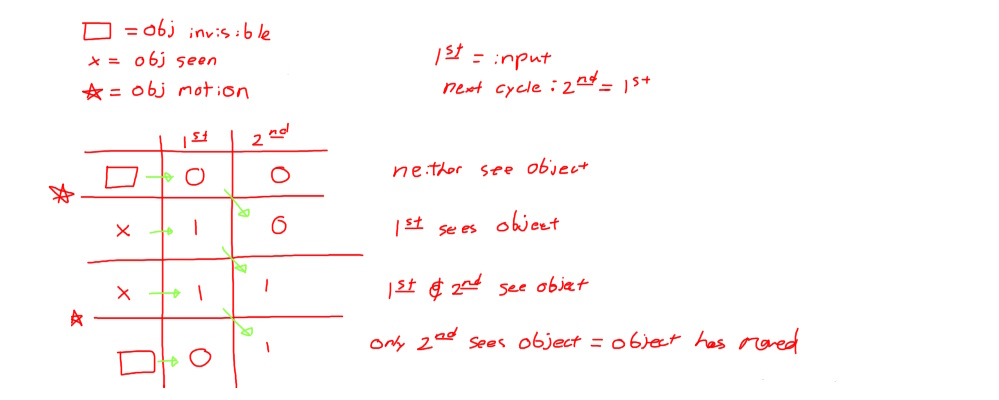 □ = obj invisible
x = obj seen
☆ = obj motion
1st = input
next cycle : 2nd = 1st
1st 2nd
□ → 0 0 neither see object
☆
x → 1 0 1st sees object
x → 1 1 1st & 2nd see object
☆
□ → 0 1 only 2nd sees object = object has moved